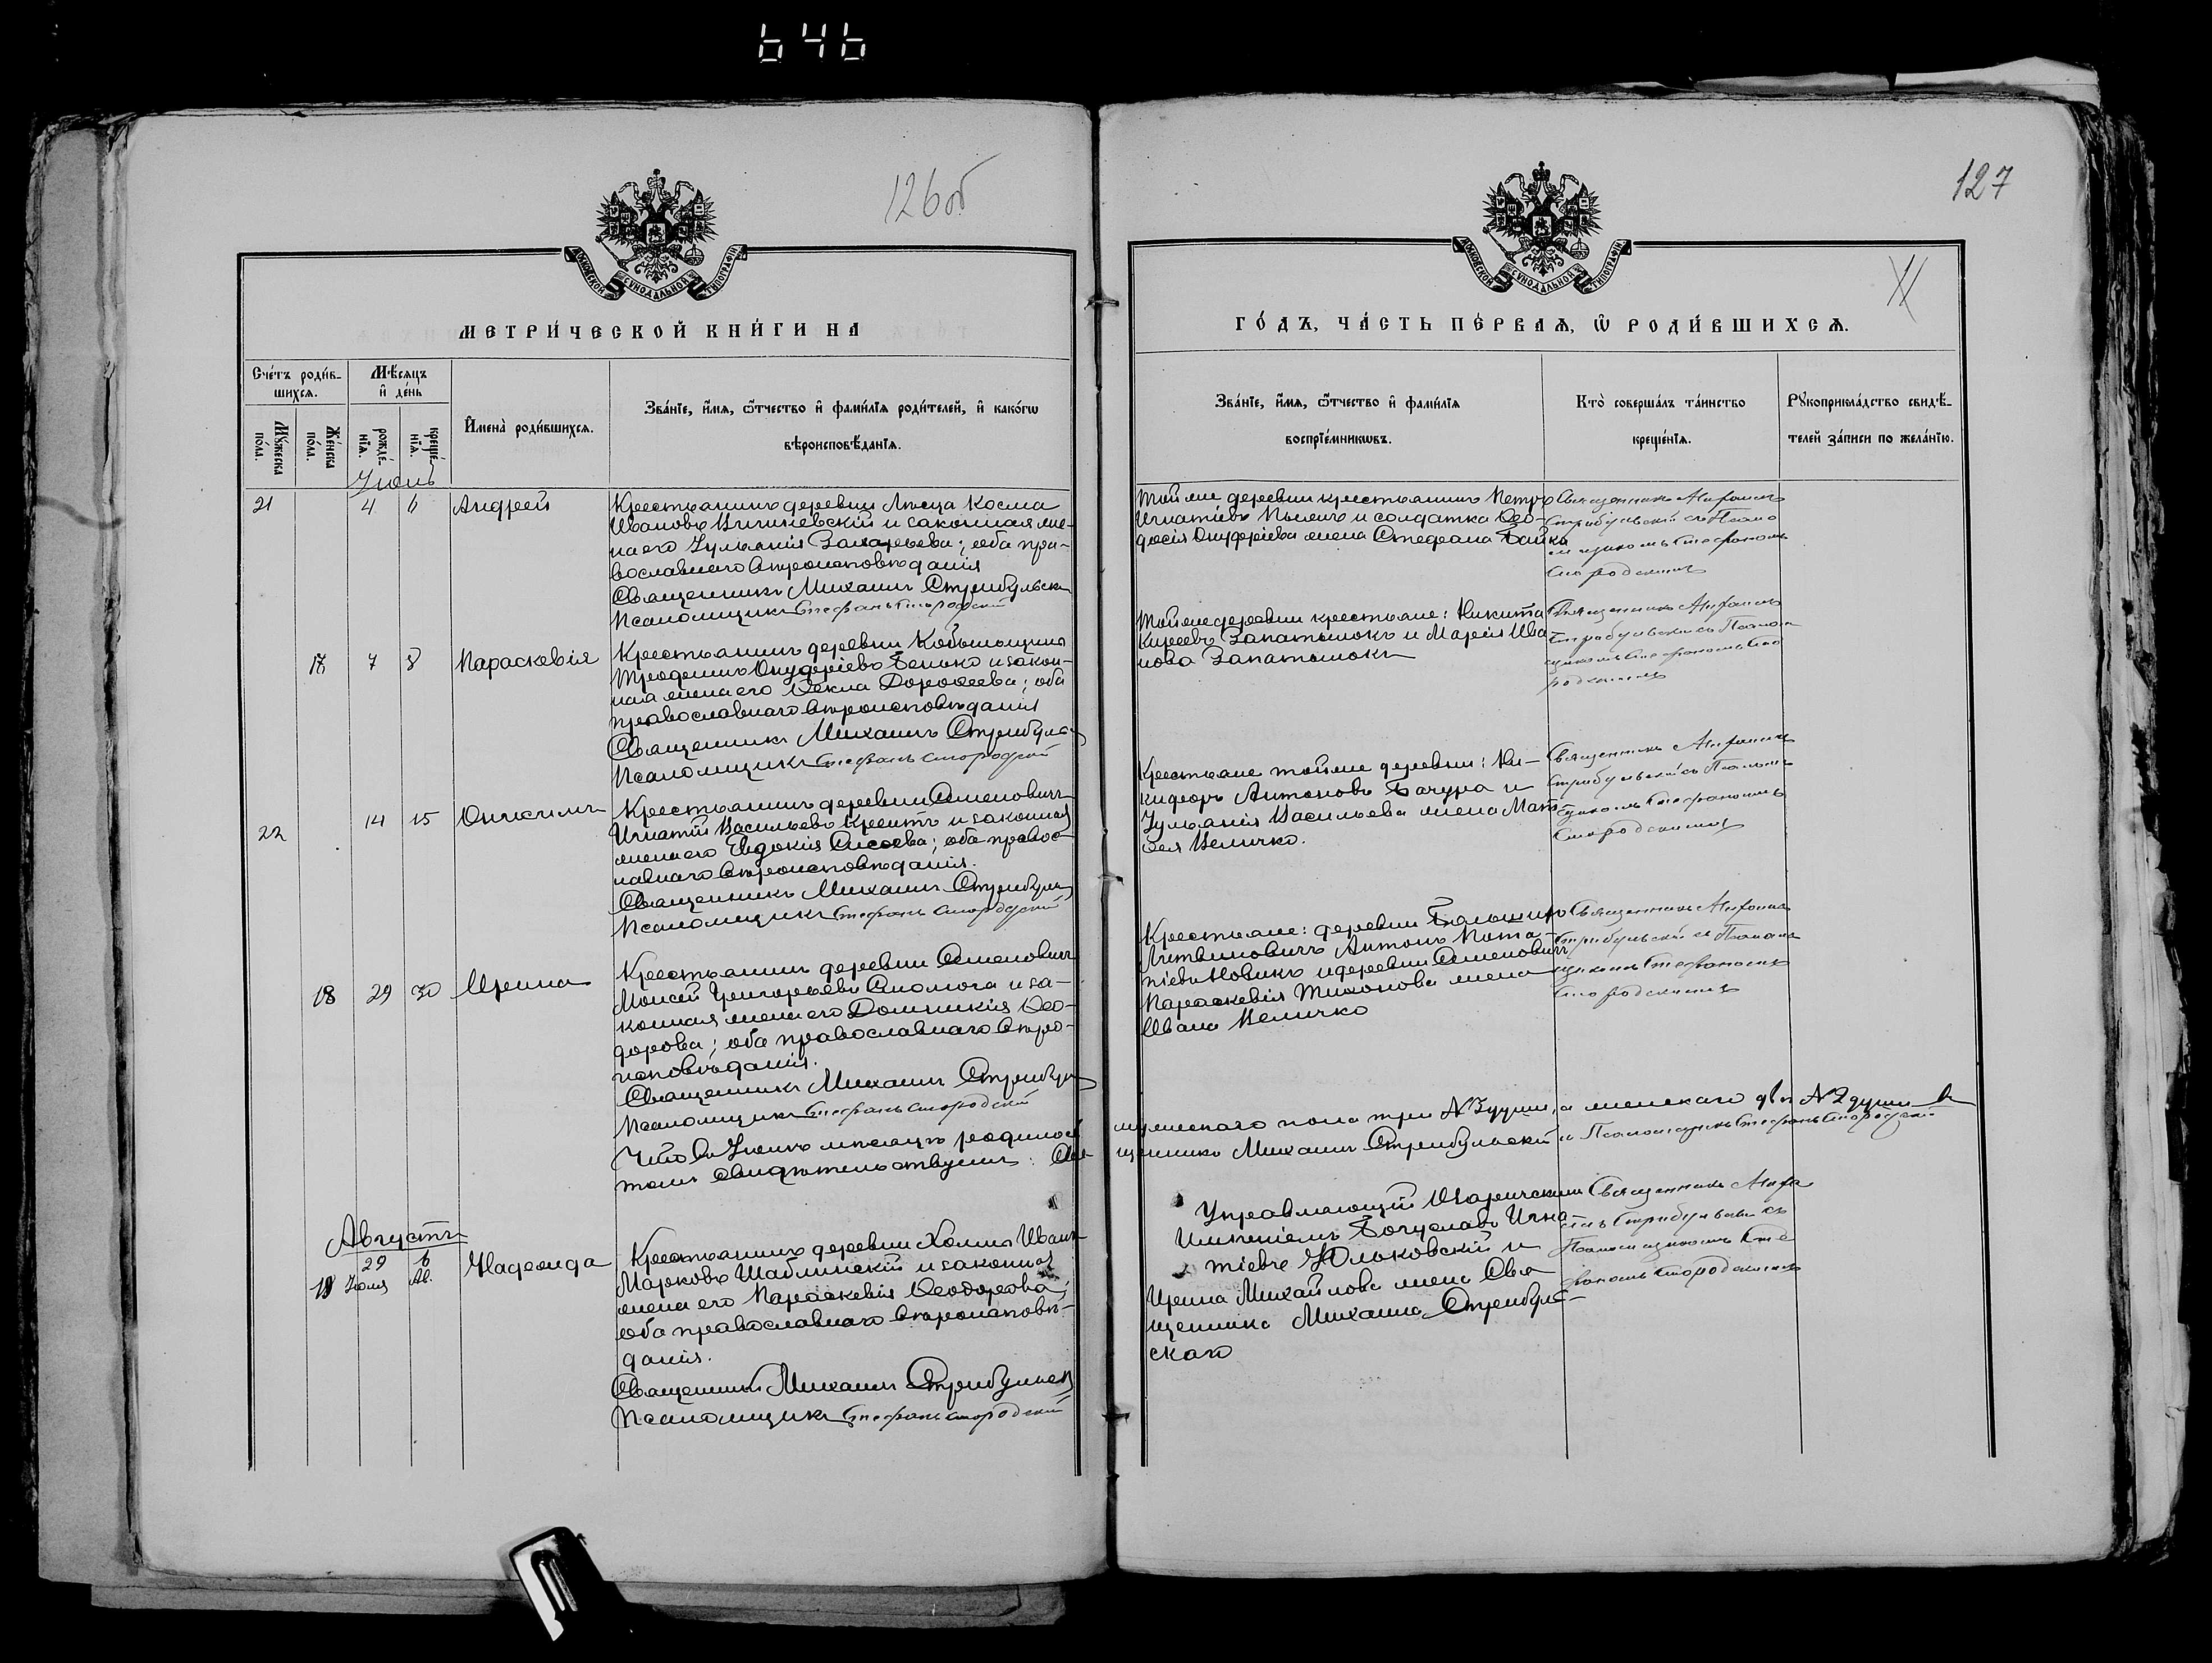 646
126об
127
МЕТРИ́ЧЕСКОЙ КНИ́ГИ НА
ГО́ДЪ, ЧА́СТЬ ПЕ́РВАѦ, Ѽ РОДИ́ВШИХСѦ.
Сче́тъ роди́в-
шихсѧ.
Мꙋ́жеска
по́ла.
Же́нска
по́ла.
Мѣ́сѧцъ
и҆ де́нь
рожде́-
нїѧ.
креще́-
нїѧ.
И҆мена̀ роди́вшихсѧ.
Зва́нїе, и҆́мѧ, ѻ҆́тчество и҆ фами́лїѧ роди́телей, и҆ како́гѡ
вѣроисповѣ́данїѧ.
Зва́нїе, и҆́мѧ, ѻ҆́тчество и҆ фами́лїѧ
воспрїе́мникѡвъ.
Кто̀ соверша́лъ та́инство
креще́нїѧ.
Рꙋкоприкла́дство свидѣ́-
телей за́писи по жела́нїю.
Іюль
21 4 6 Андрей
Крестьянинъ деревни Косма
Ивановъ и законная же-
на его Іульянія Захарьева; оба пра-
вославнаго вѣроисповѣданія
Священникъ Михаилъ Стрибульски
Псаломщикъ Стефанъ Смородскій
Той же деревни крестьянинъ Петръ
Игнатіевъ и солдатка Ѳео-
досія Онуфріева жена Стефана Байко
Священникъ Михаилъ
Стрибульскій съ Псало
мщикомъ Стефаномъ
Смородскимъ
17 7 8 Параскевія
Крестьянинъ деревни
Трофимъ Онуфріевъ Белько и закон-
ная жена его Ѳекла Дороѳеева; оба
православнаго вѣроисповѣданія
Священникъ Михаилъ Стрибульс
Псаломщикъ Стефанъ Смородскій
Той же деревни крестьяне: Никита
Киреевъ Запатылокъ и Марія Ива
нова Запатылокъ
Священникъ Михаилъ
Стрибульскій съ Псалом
щикомъ Стефаномъ Смо
родскимъ
22 14 15 Онисимъ
Крестьянинъ деревни Семеновичъ
Игнатій Васильевъ и законная
жена его Евдокія Сысоева; оба правос-
лавнаго вѣроисповѣданія.
Священникъ Михаилъ Стрибульс
Псаломщикъ Стефанъ Смородскій
Крестьяне той же деревни: Ни-
кифоръ Антоновъ Бачура и
Іульянія Васильева жена Мат-
ѳея Величко.
Священникъ Михаилъ
Стрибульскій съ Псалом
щикомъ Стефаномъ
Смородскимъ
18 29 30 Ирина
Крестьянинъ деревни Семеновичъ
Моисей Григорьевъ и за-
конная жена его Домникія Ѳео-
дорова; оба православнаго вѣро-
исповѣданія.
Священникъ Михаилъ Стрибульс
Псаломщикъ Стефанъ Смородскій
Крестьяне: деревни Большихъ
Литвиновичъ Антонъ Пота-
піевъ Новикъ и деревни Семеновичъ
Параскевія Тихонова жена
Ивана Величко
Священникъ Михаилъ
Стрибульскій съ Псалом
щикомъ Стефаномъ
Смородскимъ
Что въ Іюлѣ мѣсяцѣ родилось мужескаго пола три №3 души, а женскаго двѣ №2 души въ
томъ свидѣтельствуемъ: Священникъ Михаилъ Стрибульскій и Псаломщикъ Стефанъ Смородскій
Августъ
19 29 Іюля 6 Ав. Надежда
Крестьянинъ деревни Холма Иванъ
Марковъ Шаблинскій и законная
жена его Параскевія Ѳеодорова;
оба православнаго вѣроисповѣ-
данія.
Священникъ Михаилъ Стрибульскій
Псаломщикъ Стефанъ Смородскій
Управляющій
Имѣніемъ Богуславъ Игна-
тіевъ Юльковскій и
Ирина Михайлова жена Свя
щенника Михаила Стрибуль-
скаго
Священникъ Миха
илъ Стрибульскій съ
Псаломщикомъ Сте
фаномъ Смородскимъ